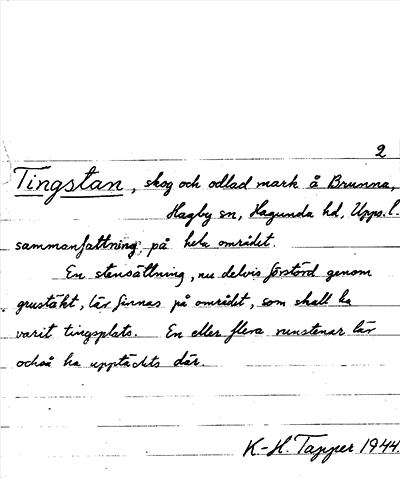 2
Tingstan, skog och odlad mark å Brunna,
Hagby sn, Hagunda hd, Upps. l.
sammanfattning på hela området.
En stensättning, nu delvis förstörd genom
grustäkt, lär finnas på området, som skall ha
varit tingsplats. En eller flera runstenar lär
också ha upptäckts där.
K-H. Tapper 1944.